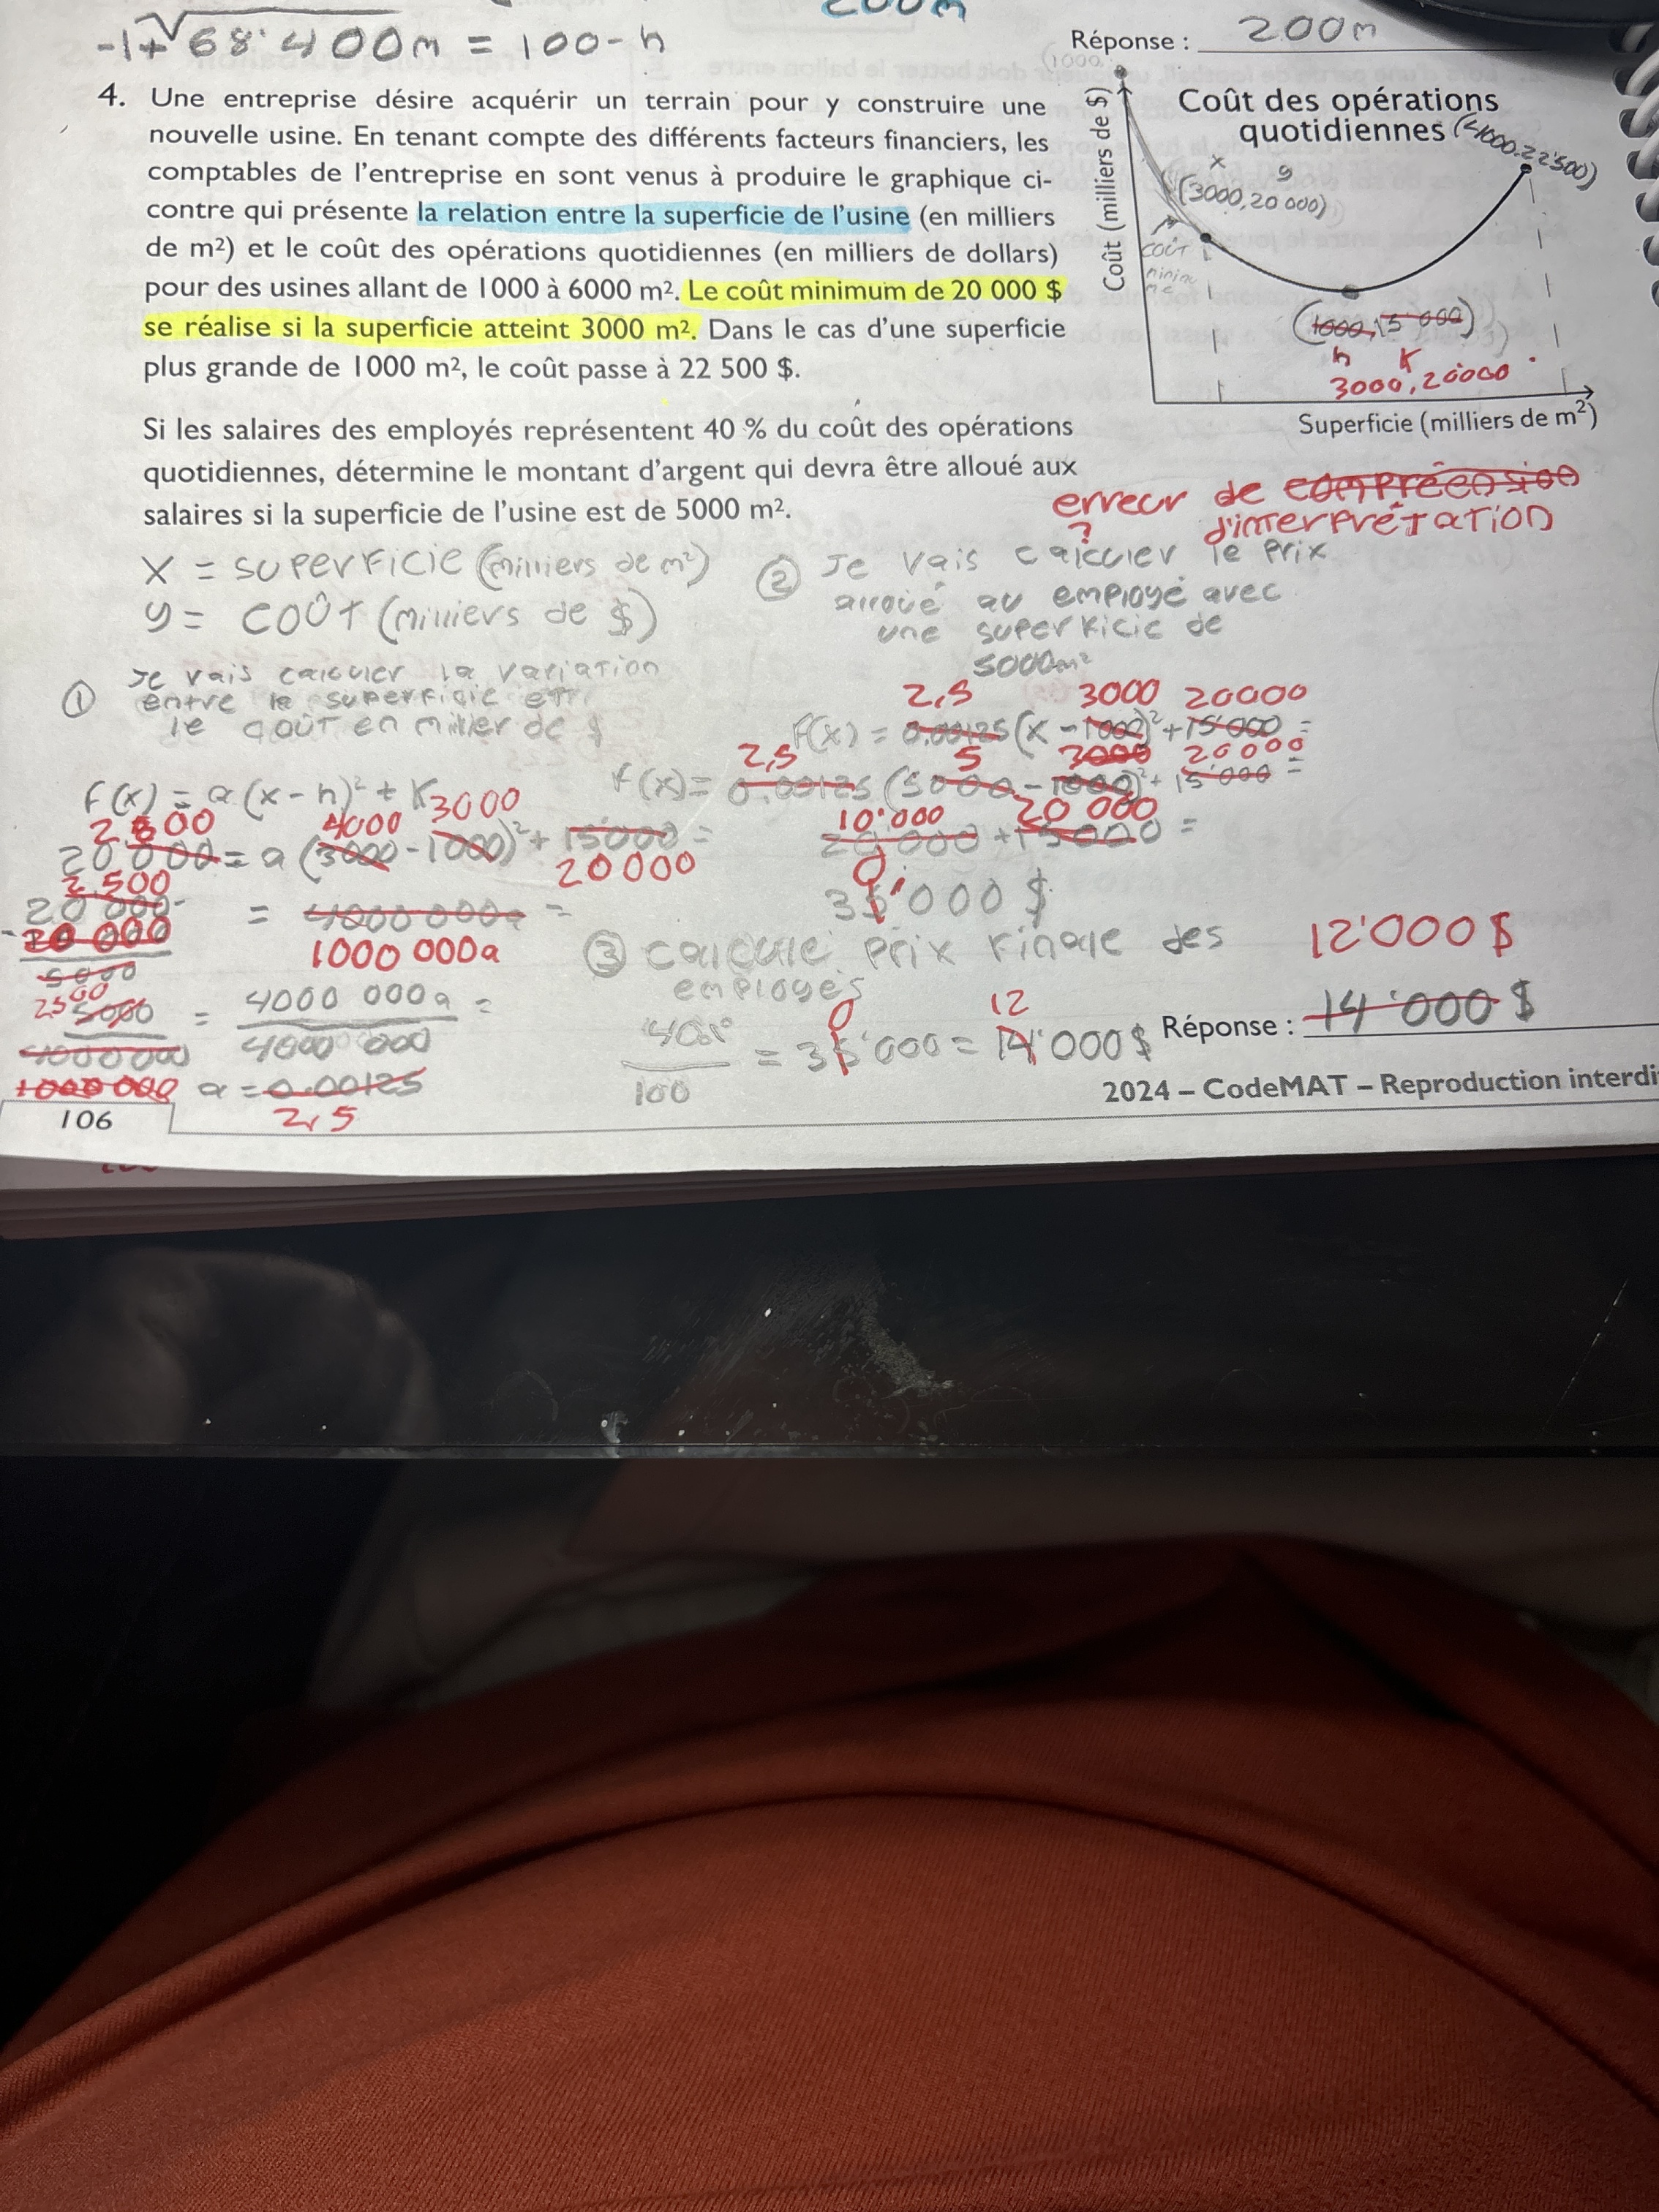 -1+√68'400m = 100-h
200m
Réponse : 200m
4. Une entreprise désire acquérir un terrain pour y construire une
nouvelle usine. En tenant compte des différents facteurs financiers, les
comptables de l'entreprise en sont venus à produire le graphique ci-
contre qui présente la relation entre la superficie de l'usine (en milliers
de m²) et le coût des opérations quotidiennes (en milliers de dollars)
pour des usines allant de 1000 à 6000 m². Le coût minimum de 20 000 $
se réalise si la superficie atteint 3000 m². Dans le cas d'une superficie
plus grande de 1000 m², le coût passe à 22 500 $.
Si les salaires des employés représentent 40 % du coût des opérations
quotidiennes, détermine le montant d'argent qui devra être alloué aux
salaires si la superficie de l'usine est de 5000 m².
(1000,
Coût des opérations
quotidiennes (4000,22'500)
Coût (milliers de $)
x y
(3000,20 000)
coût
(1000,15 000)
h K
3000,20000
Superficie (milliers de m²)
erreur de compréension
? d'interprétation
x = superficie (milliers de m²)
y = coût (milliers de $)
① Je vais calculer la variation
entre le superficie et
le coût en milier de $
f(x) = a(x-h)² + K
3000
2500 4000
20 000 = a(3000-1000)² + 15000 =
20000
2,500
20 000- = 4000 000a =
-20 000 1000 000a
5000
2500
5000 = 4000 000a =
4000 000 4000 000
1000 000 a = 0.00125
2,5
② Je vais calculer le prix
alloué au employé avec
une superficie de
5000m²
2,5 3000 20000
f(x) = 0.00125(x-1000)²+15'000 =
2,5 5 3000 20000
f(x) = 0.00125(5000-1000)²+15'000 =
10'000 20 000
20 000 + 15000 =
0
35'000 $
③ calcule prix finale des
employés
12'000 $
0 12
40 = 35'000 = 14'000$
100
Réponse : 14'000 $
2024 – CodeMAT – Reproduction interdi
106